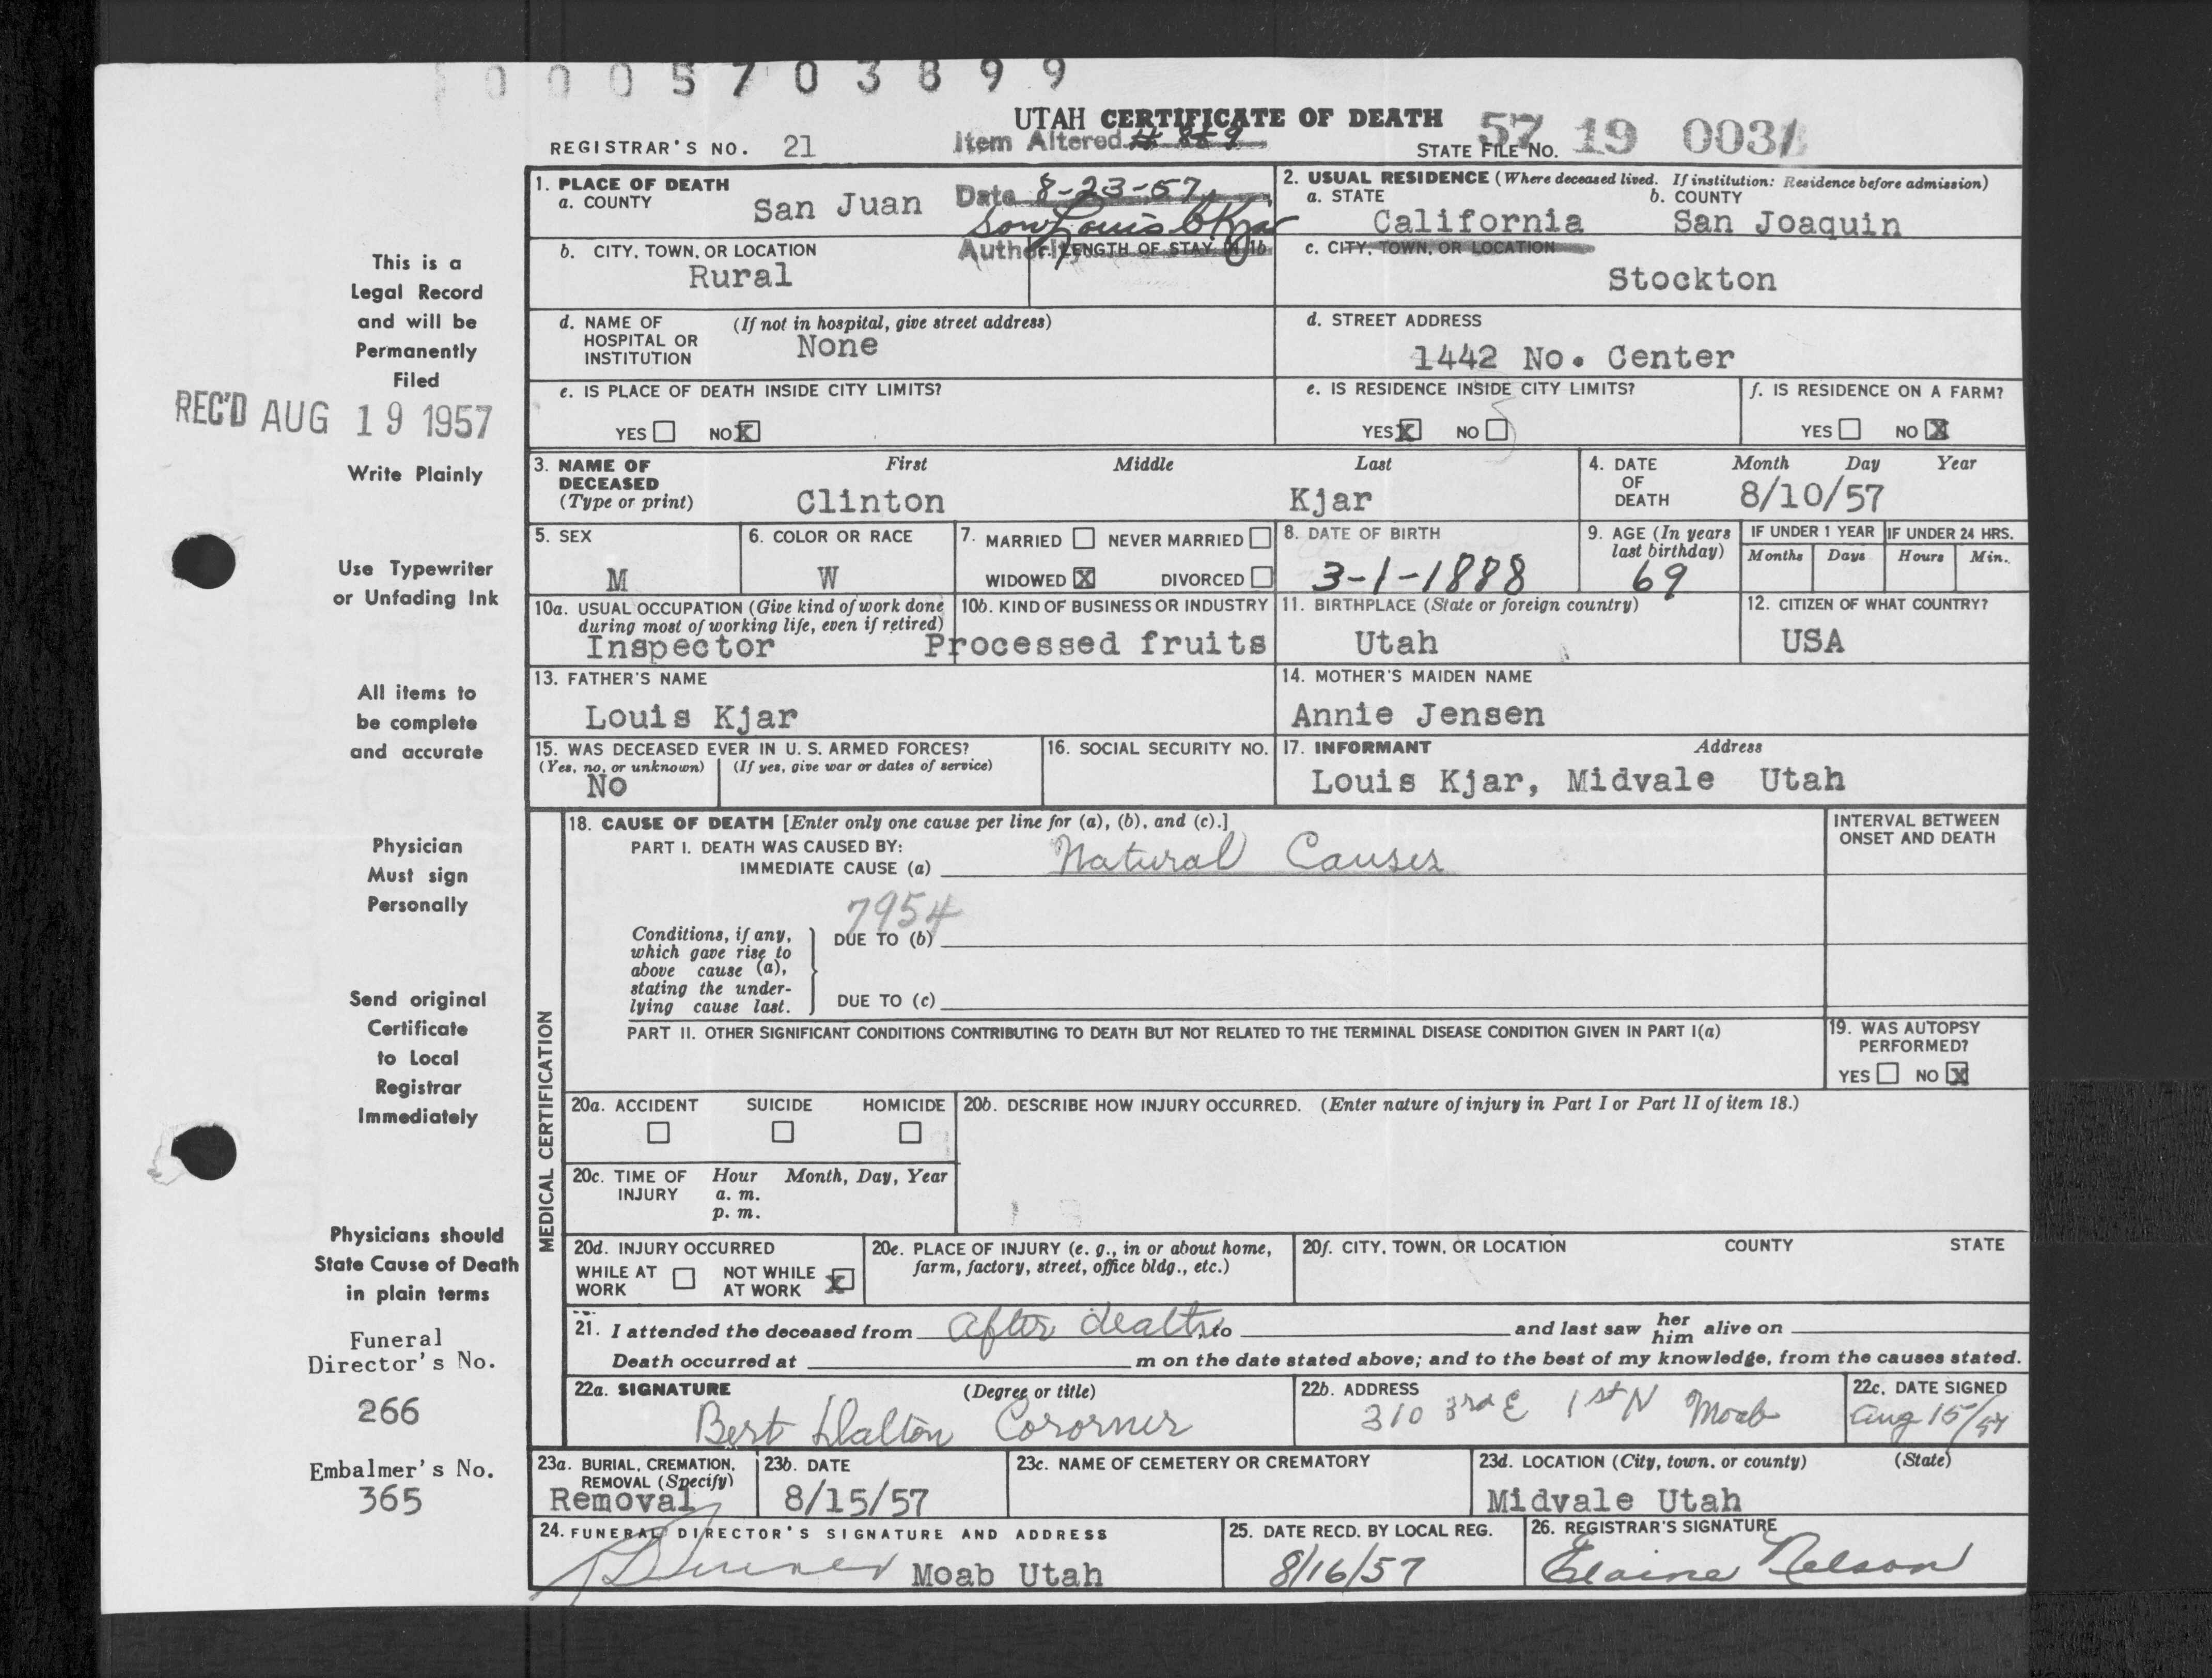 0005703899
UTAH CERTIFICATE OF DEATH
REGISTRAR'S NO. 21
Item Altered # 8&9
STATE FILE NO. 57 19 003
1. PLACE OF DEATH
a. COUNTY
San Juan
Date 8-23-57
Son Louis C Kjar
Authority
2. USUAL RESIDENCE (Where deceased lived. If institution: Residence before admission)
a. STATE
California
b. COUNTY
San Joaquin
b. CITY, TOWN, OR LOCATION
Rural
c. LENGTH OF STAY IN 1b
c. CITY, TOWN, OR LOCATION
Stockton
d. NAME OF HOSPITAL OR INSTITUTION
(If not in hospital, give street address)
None
d. STREET ADDRESS
1442 No. Center
e. IS PLACE OF DEATH INSIDE CITY LIMITS?
YES NO X
e. IS RESIDENCE INSIDE CITY LIMITS?
YES X NO
f. IS RESIDENCE ON A FARM?
YES NO X
3. NAME OF DECEASED
(Type or print)
First Middle Last
Clinton Kjar
4. DATE OF DEATH
Month Day Year
8/10/57
5. SEX
M
6. COLOR OR RACE
W
7. MARRIED NEVER MARRIED
WIDOWED X DIVORCED
8. DATE OF BIRTH
3-1-1888
9. AGE (In years last birthday)
69
IF UNDER 1 YEAR
Months Days
IF UNDER 24 HRS.
Hours Min.
10a. USUAL OCCUPATION (Give kind of work done
during most of working life, even if retired)
Inspector
10b. KIND OF BUSINESS OR INDUSTRY
Processed fruits
11. BIRTHPLACE (State or foreign country)
Utah
12. CITIZEN OF WHAT COUNTRY?
USA
13. FATHER'S NAME
Louis Kjar
14. MOTHER'S MAIDEN NAME
Annie Jensen
15. WAS DECEASED EVER IN U. S. ARMED FORCES?
(Yes, no, or unknown) (If yes, give war or dates of service)
No
16. SOCIAL SECURITY NO.
17. INFORMANT Address
Louis Kjar, Midvale Utah
MEDICAL CERTIFICATION
18. CAUSE OF DEATH [Enter only one cause per line for (a), (b), and (c).]
PART I. DEATH WAS CAUSED BY:
IMMEDIATE CAUSE (a) Natural Causes
INTERVAL BETWEEN
ONSET AND DEATH
7954
Conditions, if any,
which gave rise to
above cause (a),
stating the under-
lying cause last.
DUE TO (b)
DUE TO (c)
PART II. OTHER SIGNIFICANT CONDITIONS CONTRIBUTING TO DEATH BUT NOT RELATED TO THE TERMINAL DISEASE CONDITION GIVEN IN PART I(a)
19. WAS AUTOPSY
PERFORMED?
YES NO X
20a. ACCIDENT SUICIDE HOMICIDE
20b. DESCRIBE HOW INJURY OCCURRED. (Enter nature of injury in Part I or Part II of item 18.)
20c. TIME OF INJURY
Hour Month, Day, Year
a. m.
p. m.
20d. INJURY OCCURRED
WHILE AT WORK NOT WHILE AT WORK X
20e. PLACE OF INJURY (e. g., in or about home,
farm, factory, street, office bldg., etc.)
20f. CITY, TOWN, OR LOCATION COUNTY STATE
21. I attended the deceased from After death, to and last saw her him alive on
Death occurred at m on the date stated above; and to the best of my knowledge, from the causes stated.
22a. SIGNATURE (Degree or title)
Bert Dalton Cororner
22b. ADDRESS
310 3rd E 1st N Moab
22c. DATE SIGNED
Aug 15/57
23a. BURIAL, CREMATION,
REMOVAL (Specify)
Removal
23b. DATE
8/15/57
23c. NAME OF CEMETERY OR CREMATORY
23d. LOCATION (City, town, or county) (State)
Midvale Utah
24. FUNERAL DIRECTOR'S SIGNATURE AND ADDRESS
Moab Utah
25. DATE RECD. BY LOCAL REG.
8/16/57
26. REGISTRAR'S SIGNATURE
Elaine Nelson
This is a
Legal Record
and will be
Permanently
Filed
REC'D AUG 19 1957
Write Plainly
Use Typewriter
or Unfading Ink
All items to
be complete
and accurate
Physician
Must sign
Personally
Send original
Certificate
to Local
Registrar
Immediately
Physicians should
State Cause of Death
in plain terms
Funeral
Director's No.
266
Embalmer's No.
365